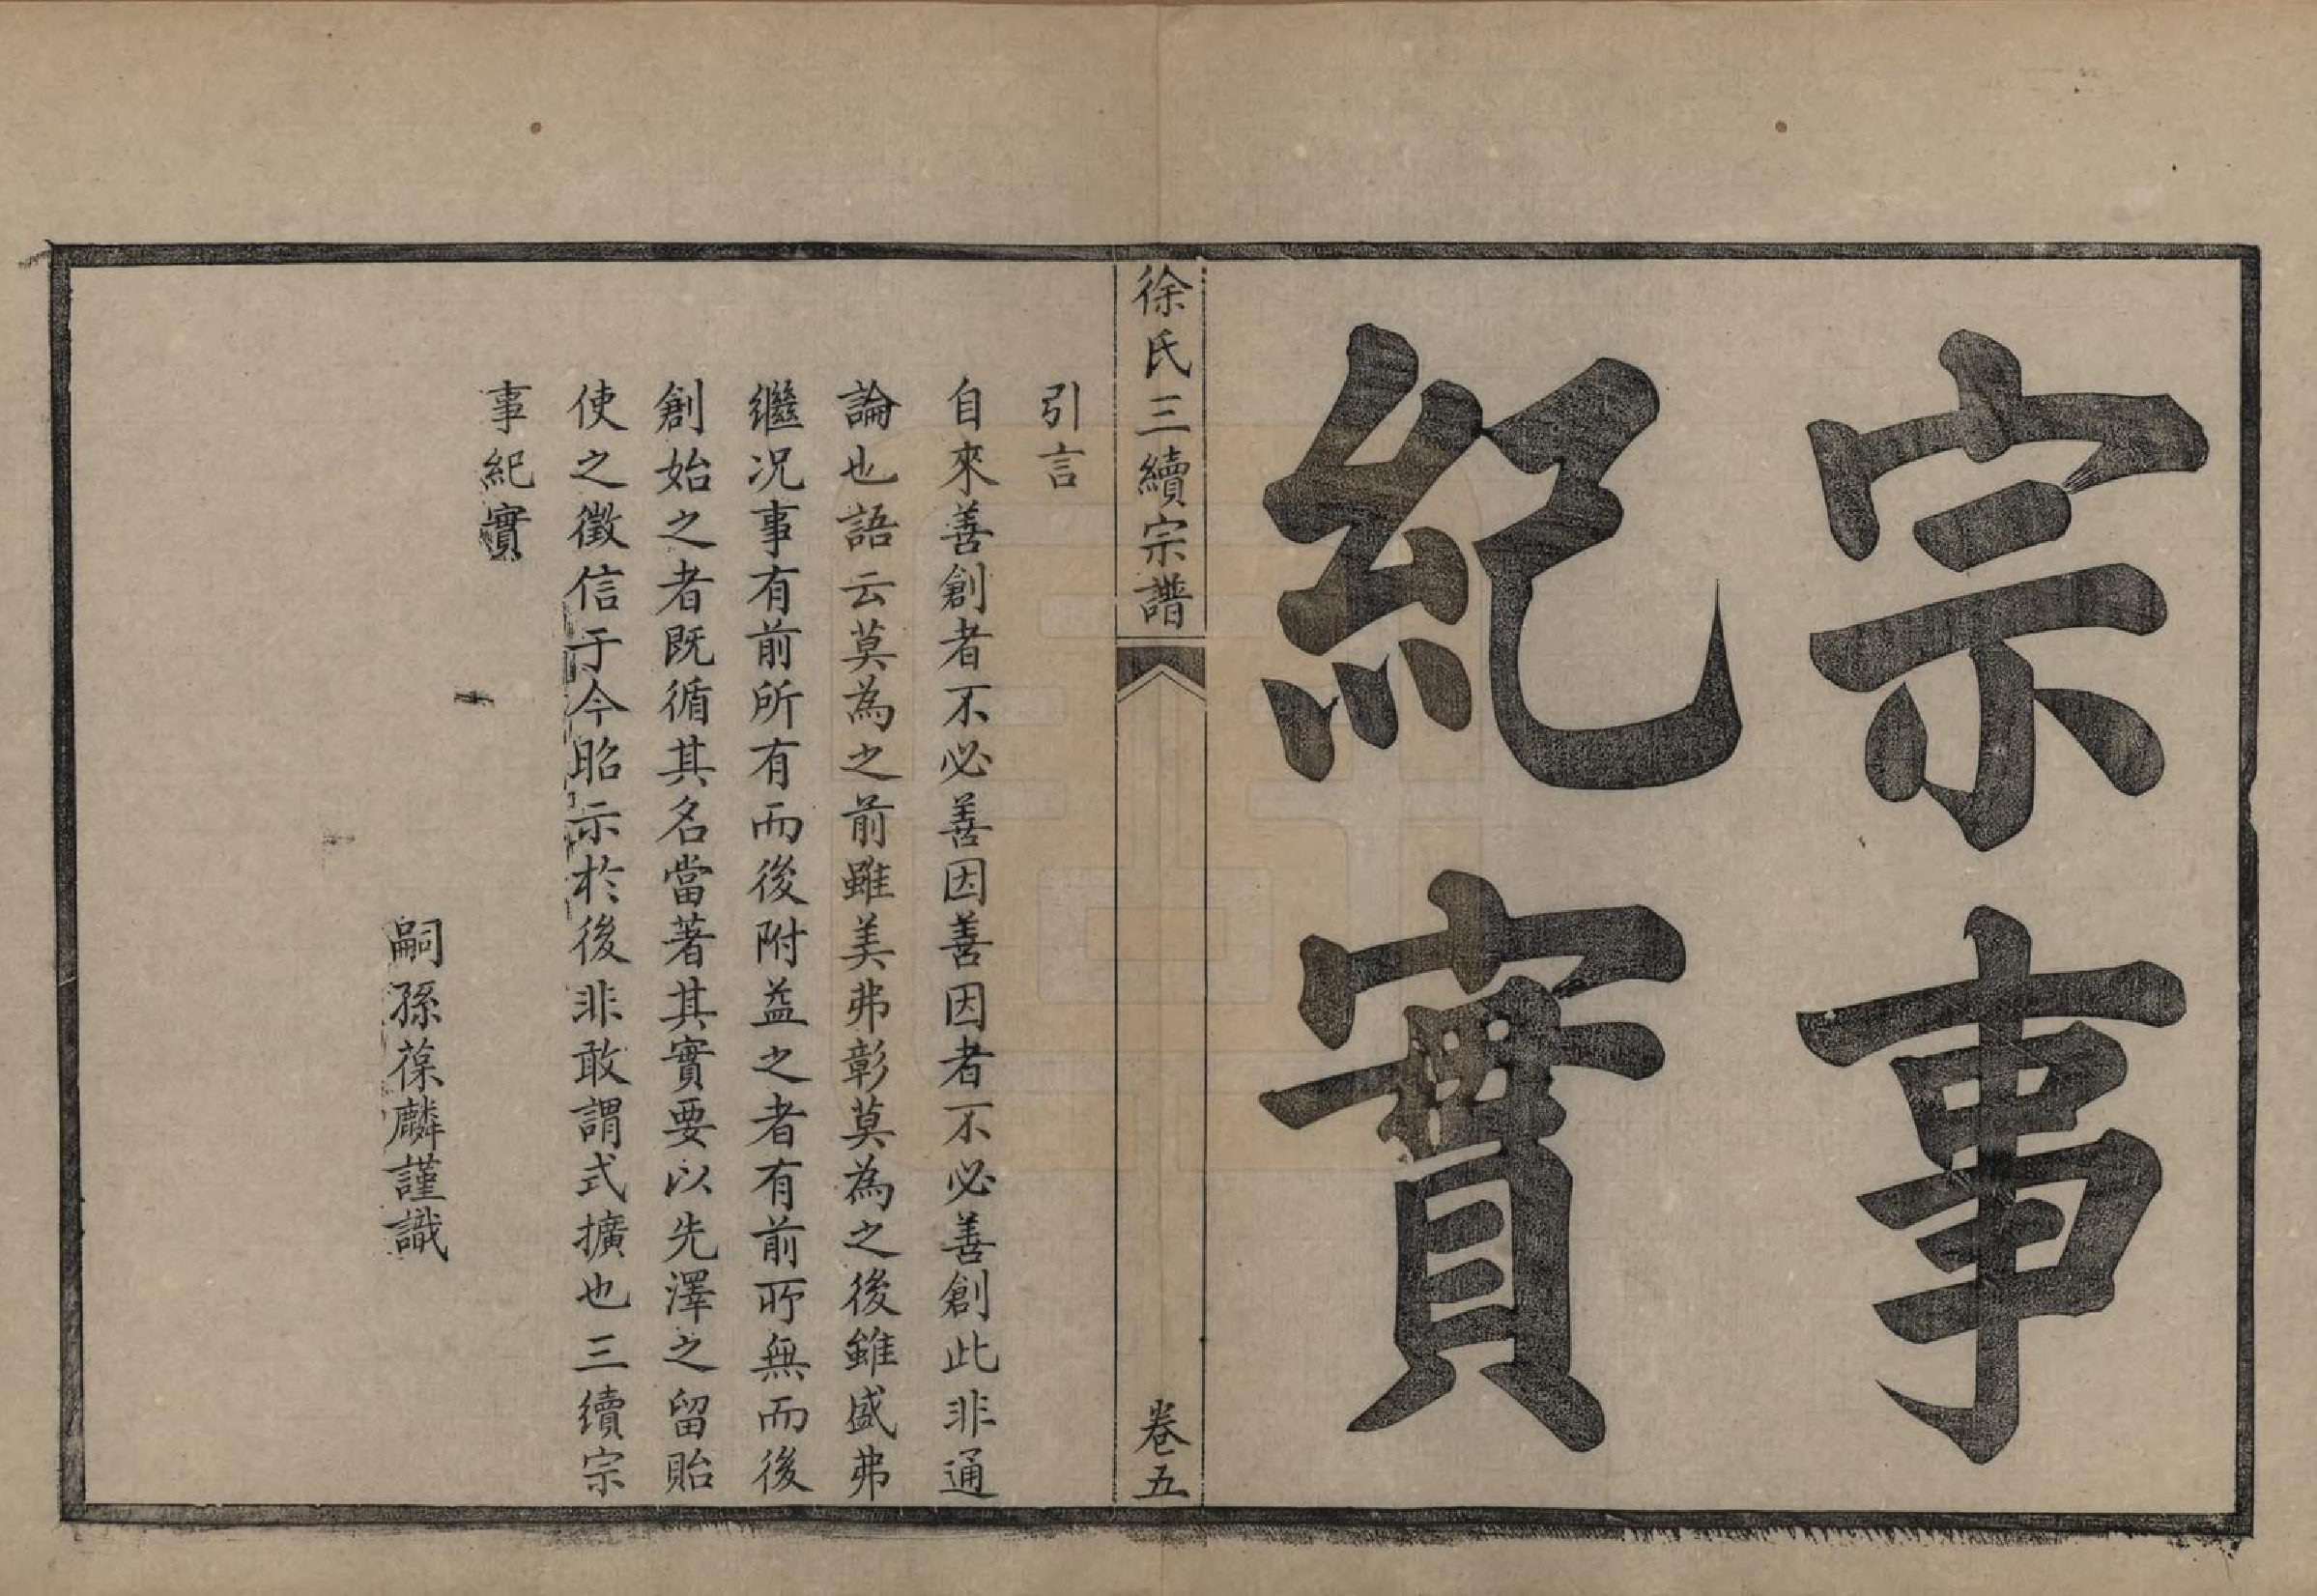 宗事
紀實
徐氏三續宗譜
卷五
引言
自來善創者不必善因善因者不必善創此非通
論也語云莫為之前雖美弗彰莫為之後雖盛弗
繼况事有前所有而後附益之者有前所無而後
創始之者既循其名當著其實要以先澤之留貽
使之徵信于今昭示於後非敢謂式擴也三續宗
事紀實
嗣孫葆麟謹識